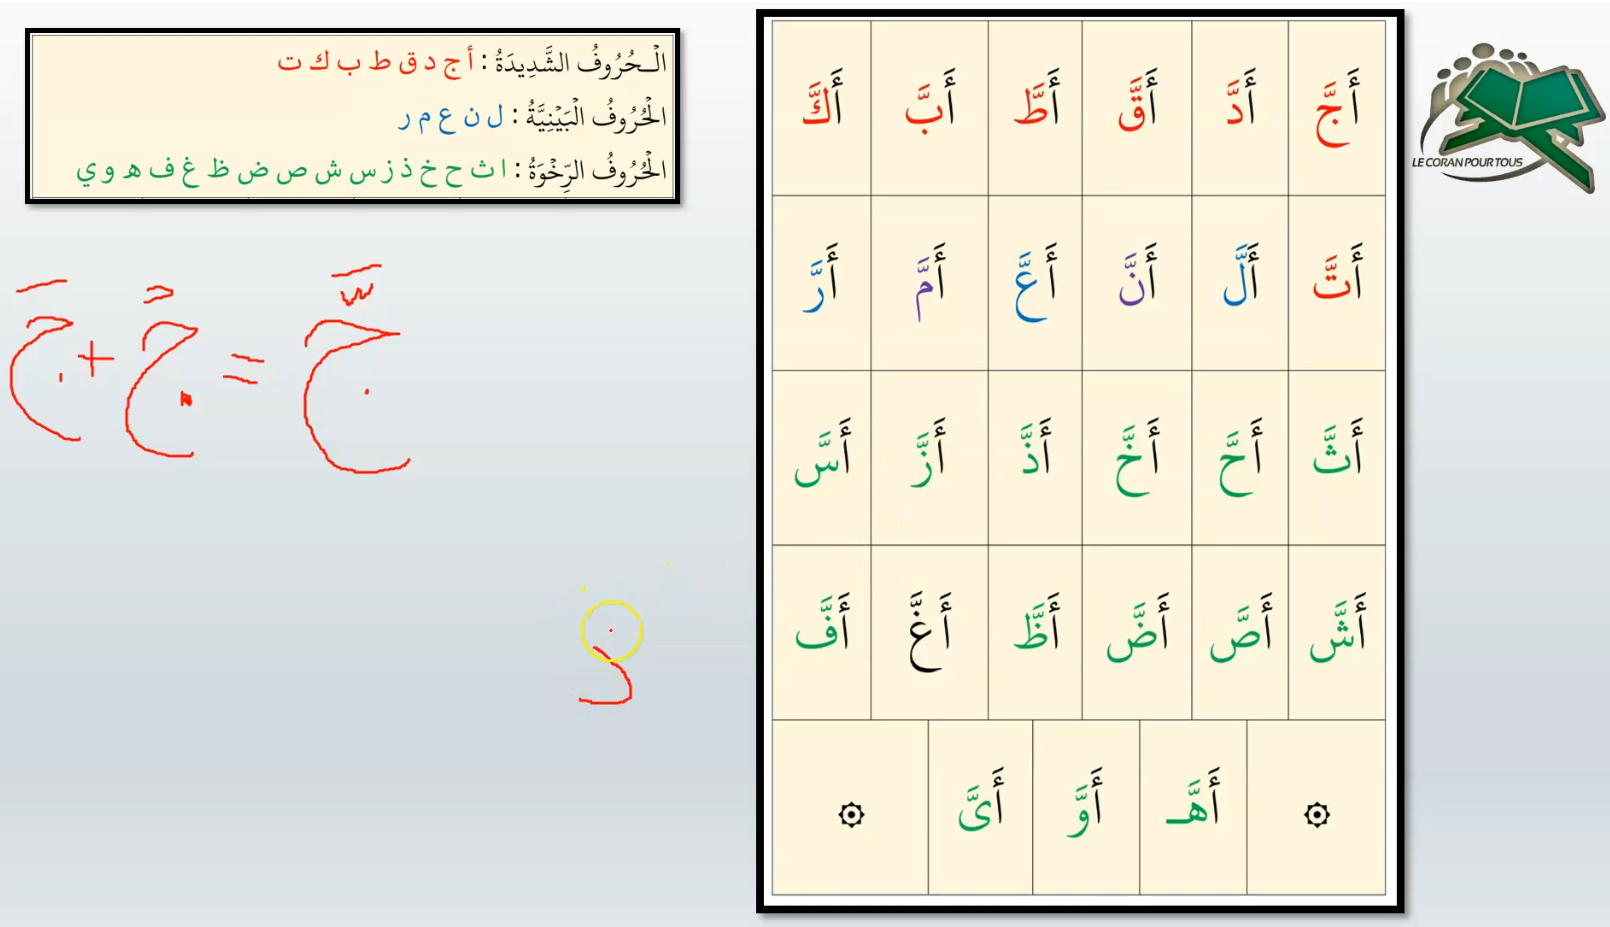 الْحُرُوفُ الشَّدِيدَةُ : أ ج د ق ط ب ك ت
الْحُرُوفُ الْبَيْنِيَّةُ : ل ن ع م ر
الْحُرُوفُ الرِّخْوَةُ : ا ث ح خ ذ ز س ش ص ض ظ غ ف ه و ي
أَجَّ أَدَّ أَقَّ أَطَّ أَبَّ أَكَّ
أَتَّ أَلَّ أَنَّ أَعَّ أَمَّ أَرَّ
أَثَّ أَحَّ أَخَّ أَذَّ أَزَّ أَسَّ
أَشَّ أَصَّ أَضَّ أَظَّ أَغَّ أَفَّ
أَهَّـ أَوَّ أَىَّ
LE CORAN POUR TOUS
جَّ = جْ + جَ
د